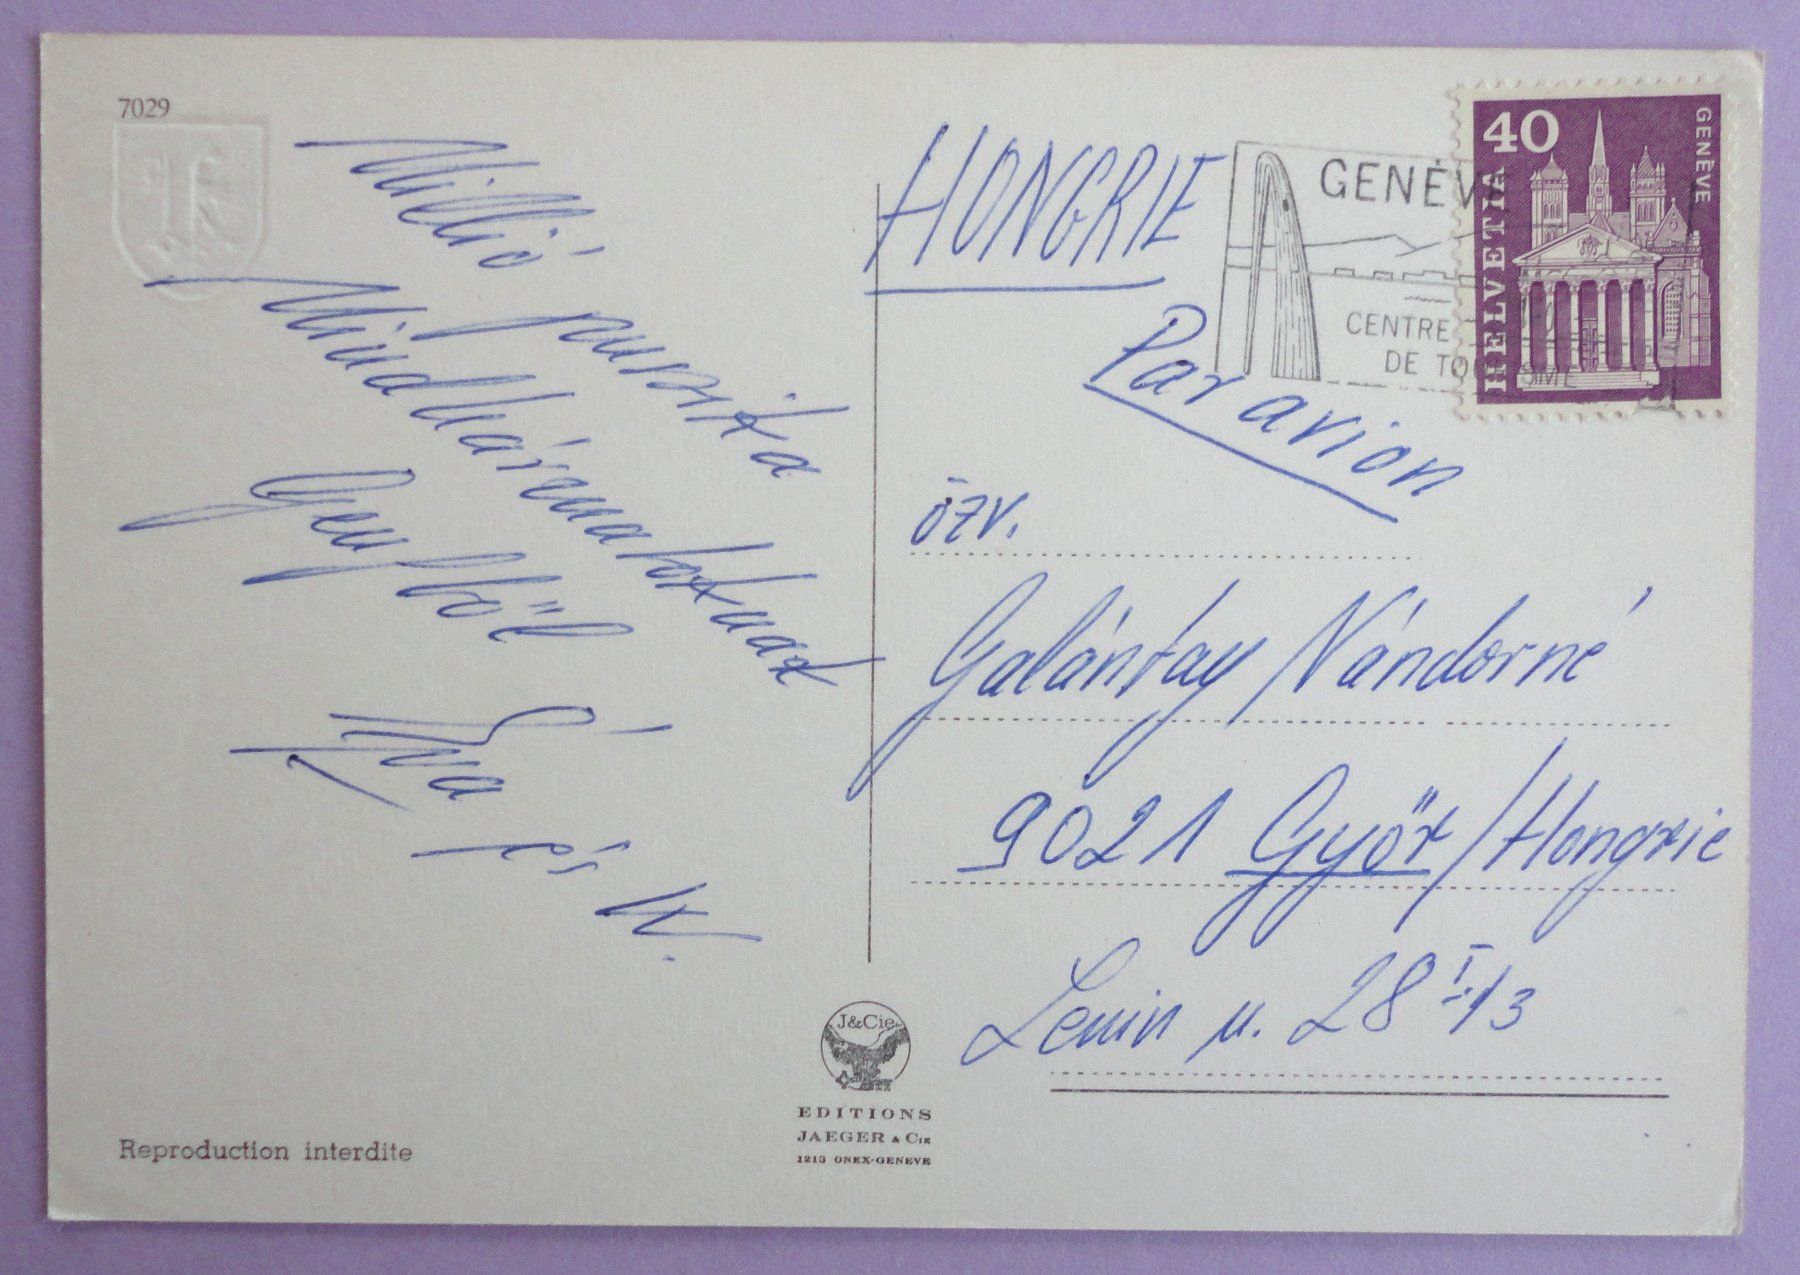 7029
Millió
puszika
Mindhármatoknak
Genfből
Éva és W.
HONGRIE
Par avion
GENÈV
CENTRE
DE TOURISME
40
GENÈVE
HELVETIA
özv.
Galántay Nándorné
9021 Győr/Hongrie
Lenin u. 28 I./3
J&Cie
EDITIONS
JAEGER & CIE
1213 ONEX-GENEVE
Reproduction interdite